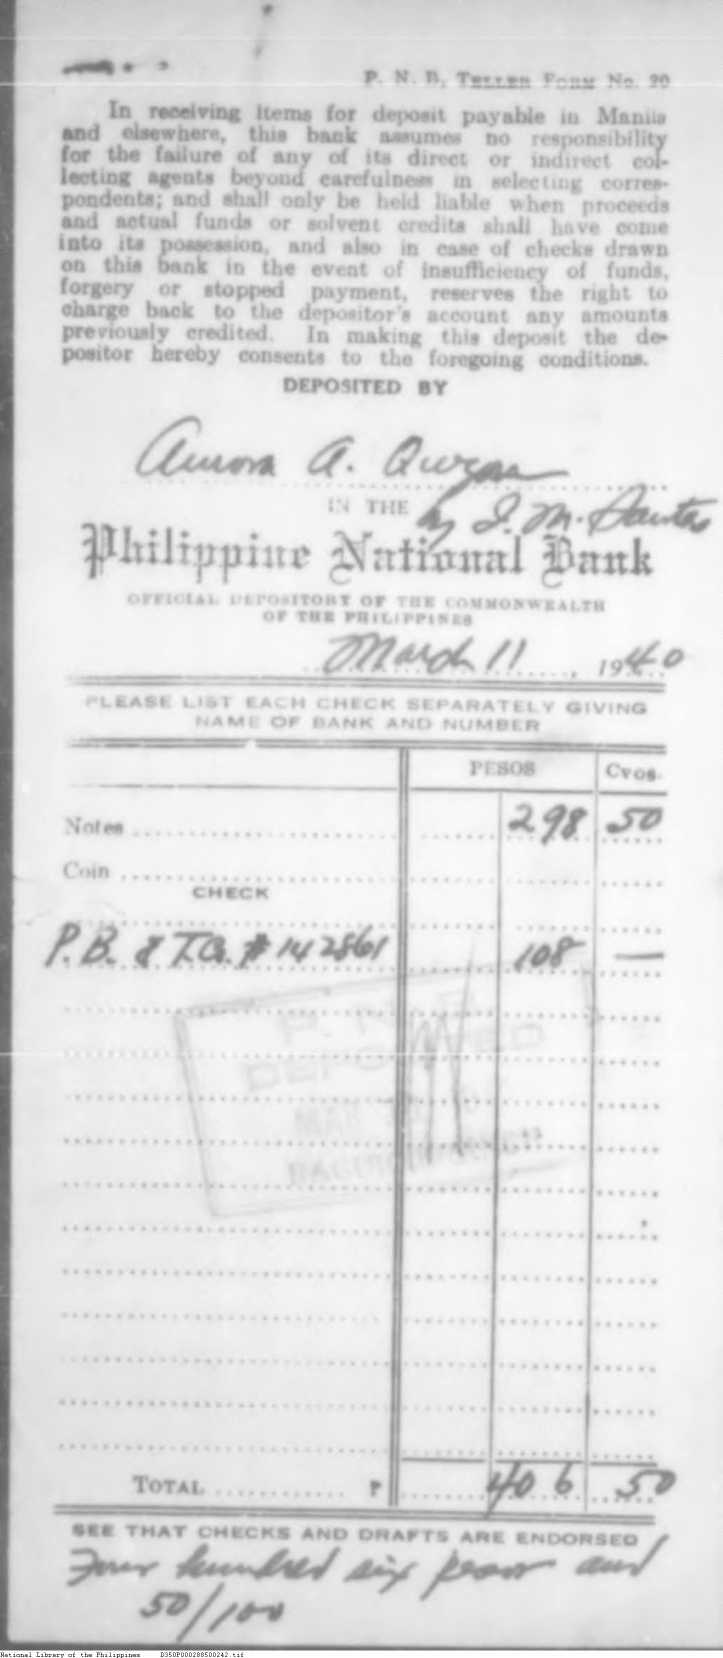 P. N. B. TELLER FORM No. 20
In receiving items for deposit payable in Manila
and elsewhere, this bank assumes no responsibility
for the failure of any of its direct or indirect col-
lecting agents beyond carefulness in selecting corres-
pondents; and shall only be held liable when proceeds
and actual funds or solvent credits shall have come
into its possession, and also in case of checks drawn
on this bank in the event of insufficiency of funds,
forgery or stopped payment, reserves the right to
charge back to the depositor's account any amounts
previously credited. In making this deposit the de-
positor hereby consents to the foregoing conditions.
DEPOSITED BY
Aurora A. Quezon
IN THE by J. M. Santos
Philippine National Bank
OFFICIAL DEPOSITORY OF THE COMMONWEALTH
OF THE PHILIPPINES
March 11, 1940
PLEASE LIST EACH CHECK SEPARATELY GIVING
NAME OF BANK AND NUMBER
PESOS Cvos.
Notes 298 50
Coin
CHECK
P.B. & T.Co. # 142861 108 —
P. N. B.
DEPOSITED
MAR
TOTAL ₱ 406 50
SEE THAT CHECKS AND DRAFTS ARE ENDORSED
Four hundred six pesos and
50/100
National Library of the Philippines D350P000288500242.tif